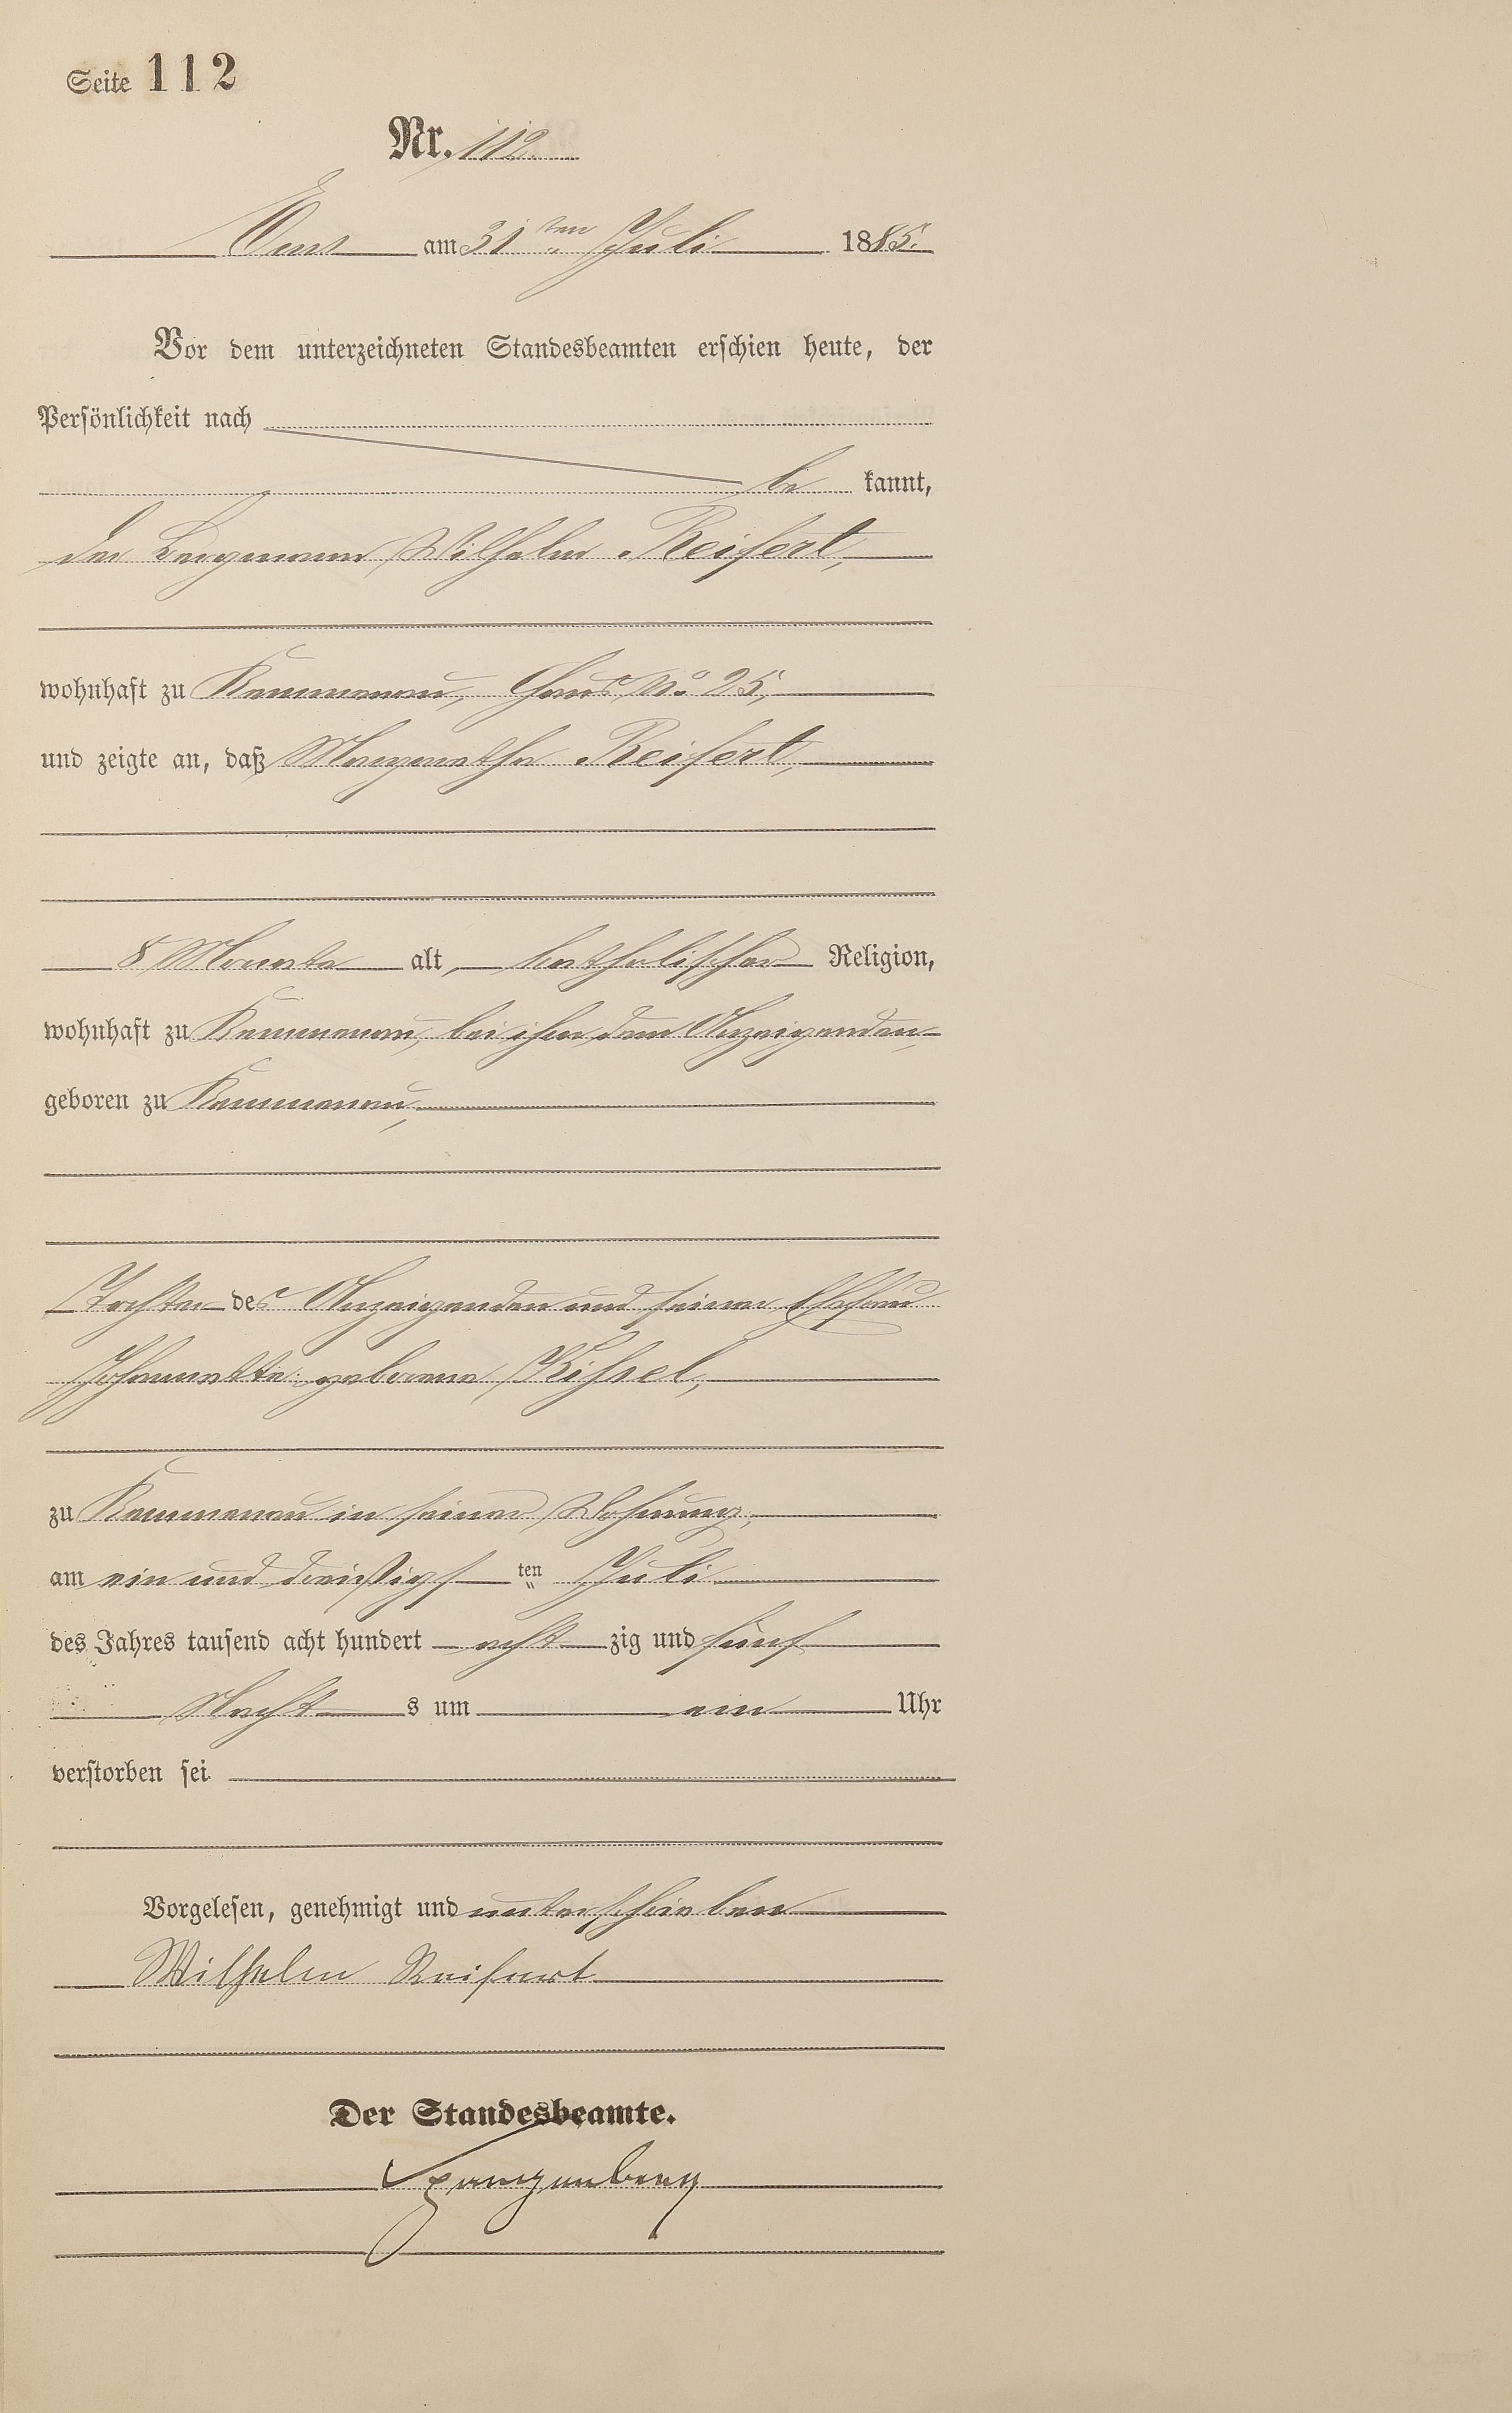 Seite 112
Nr. 112.
Ems am 31ten Juli 1885.
Vor dem unterzeichneten Standesbeamten erschien heute, der
Persönlichkeit nach
be kannt,
der Bergmann Wilhelm Reifert,
wohnhaft zu Kemmenau, Haus No 25,
und zeigte an, daß Margaretha Reifert,
8 Monate alt, katholischer Religion,
wohnhaft zu Kemmenau, bei ihm, dem Anzeigenden,
geboren zu Kemmenau,
Tochter des Anzeigenden und seiner Ehefrau
Johannette geborene Kissel,
zu Kemmenau in seiner Wohnung,
am ein und dreißigsten Juli
des Jahres tausend acht hundert acht zig und fünf
Nacht s um ein Uhr
verstorben sei
Vorgelesen, genehmigt und unterschrieben
Wilhelm Reifert
Der Standesbeamte.
Spangenberg